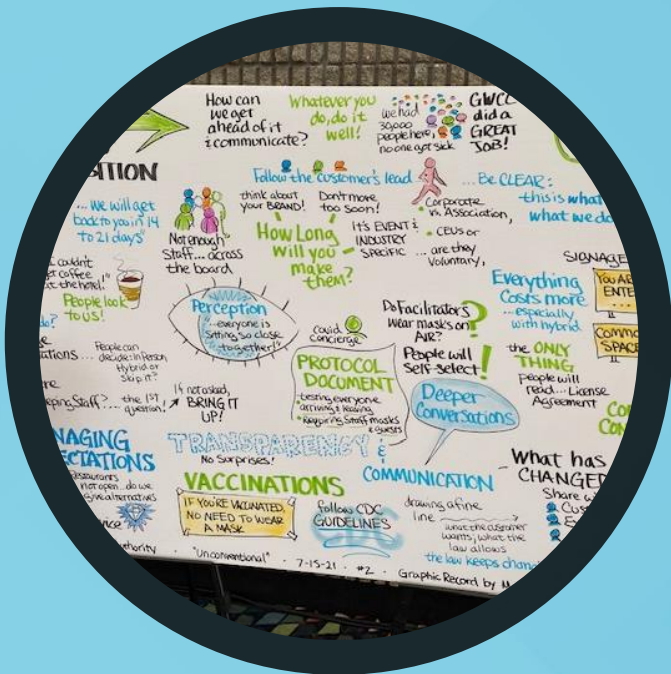 How can
we get
ahead of it
& communicate?
Whatever you
do, do it
well!
we had
30,000
people here,
no one got sick
GWCC
did a
GREAT
JOB!
ITION
... we will get
back to you in 14
to 21 days"
Not enough
Staff... across
the board
Follow the customer's lead
think about
your BRAND!
Don't move
too soon!
How Long
Will you
make
them?
IT'S EVENT &
INDUSTRY
SPECIFIC
• Corporate
vs. Association,
• CEUs or
... are they
Voluntary,
... Be CLEAR:
this is what
what we do
SIGNAGE
YOU AR
ENTE
...
COMMO
SPACE
couldn't
get coffee
at the hotel!"
People look
to us!
do?
Perception
...everyone is
sitting so close
together!"
Covid
concierge
Do Facilitators
Wear masks on
AIR?
?
People will
Self-Select
!
Everything
Costs more
...especially
with hybrid
the ONLY
THING
people will
read... License
Agreement
ations...
People can
decide: In Person
Hybrid or
Skip it?
eping Staff?...
the 1ST
question!
If not asked,
BRING IT
UP!
PROTOCOL
DOCUMENT
• testing everyone
arriving & leaving
• Requiring Staff masks
& guests
Deeper
Conversations
CO
CON
NAGING
ECTATIONS
Restaurants
not open... do we
give alternatives
vice
TRANSPARENCY &
No Surprises!
COMMUNICATION
VACCINATIONS
IF YOU'RE VACCINATED,
NO NEED TO WEAR
A MASK
follow CDC
GUIDELINES
CDC
drawing a fine
line
what the customer
wants, what the
law allows
the law keeps chang
What has
CHANGED
Share w
Cus
E
thority • "Unconventional" • 7-15-21 • #2 • Graphic Record by